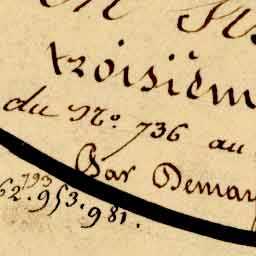 troisièm
du N.º 736 au
Par Demar
793
62.953.981.